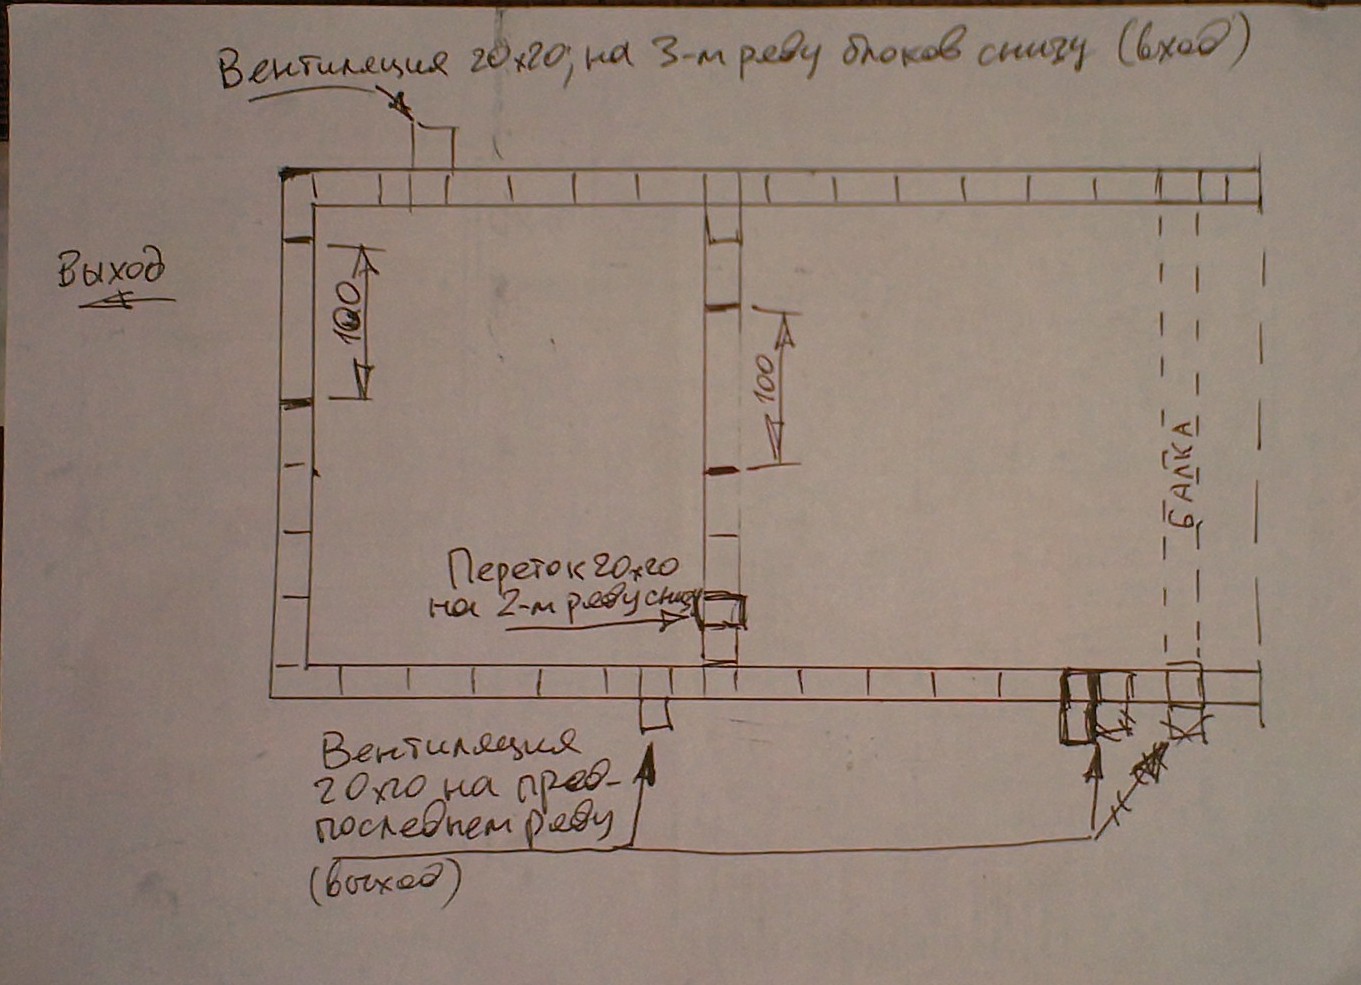 Вентиляция 20x20; на 3-м ряду блоков снизу (вход)
Выход
100
100
БАЛКА
Переток 20x20
на 2-м ряду снизу
Вентиляция
20x20 на пред-
последнем ряду
(выход)